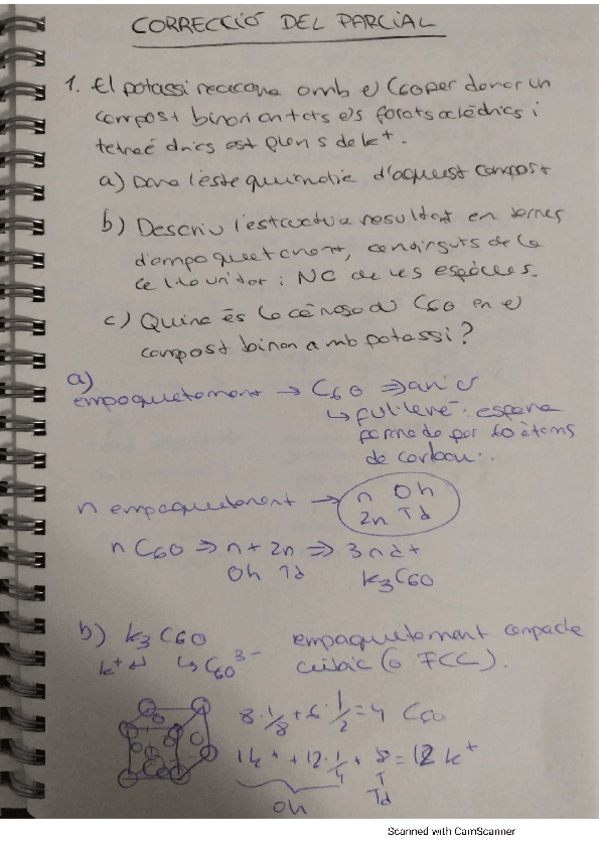 CORRECCIÓ DEL PARCIAL
1. El potassi reacciona amb el C60 per donar un
compost binari on tots els forats octèdrics i
tetraèdrics est plens de k+.
a) Dona l'estequiometria d'aquest compost
b) Descriu l'estructura resultant en termes
d'empaquetament, continguts de la
cel·la unitat i NC de les espècies.
c) Quina és la càrrega del C60 en el
compost binari amb potassi?
a)
empaquetament → C60 ⇒ anió
↳ ful·lerè: esfera
formada por 60 àtoms
de carboni.
n empaquetament → n Oh
2n Td
n C60 ⇒ n + 2n ⇒ 3n k+
Oh Td K3C60
b) k3 C60 empaquetament compacte
k+ ↲ ↳ C60 3- cúbic (ó FCC).
8·1/8 + 6·1/2 = 4 C60
1k+ + 12·1/4 + 8 = 12 k+
Oh Td
Scanned with CamScanner